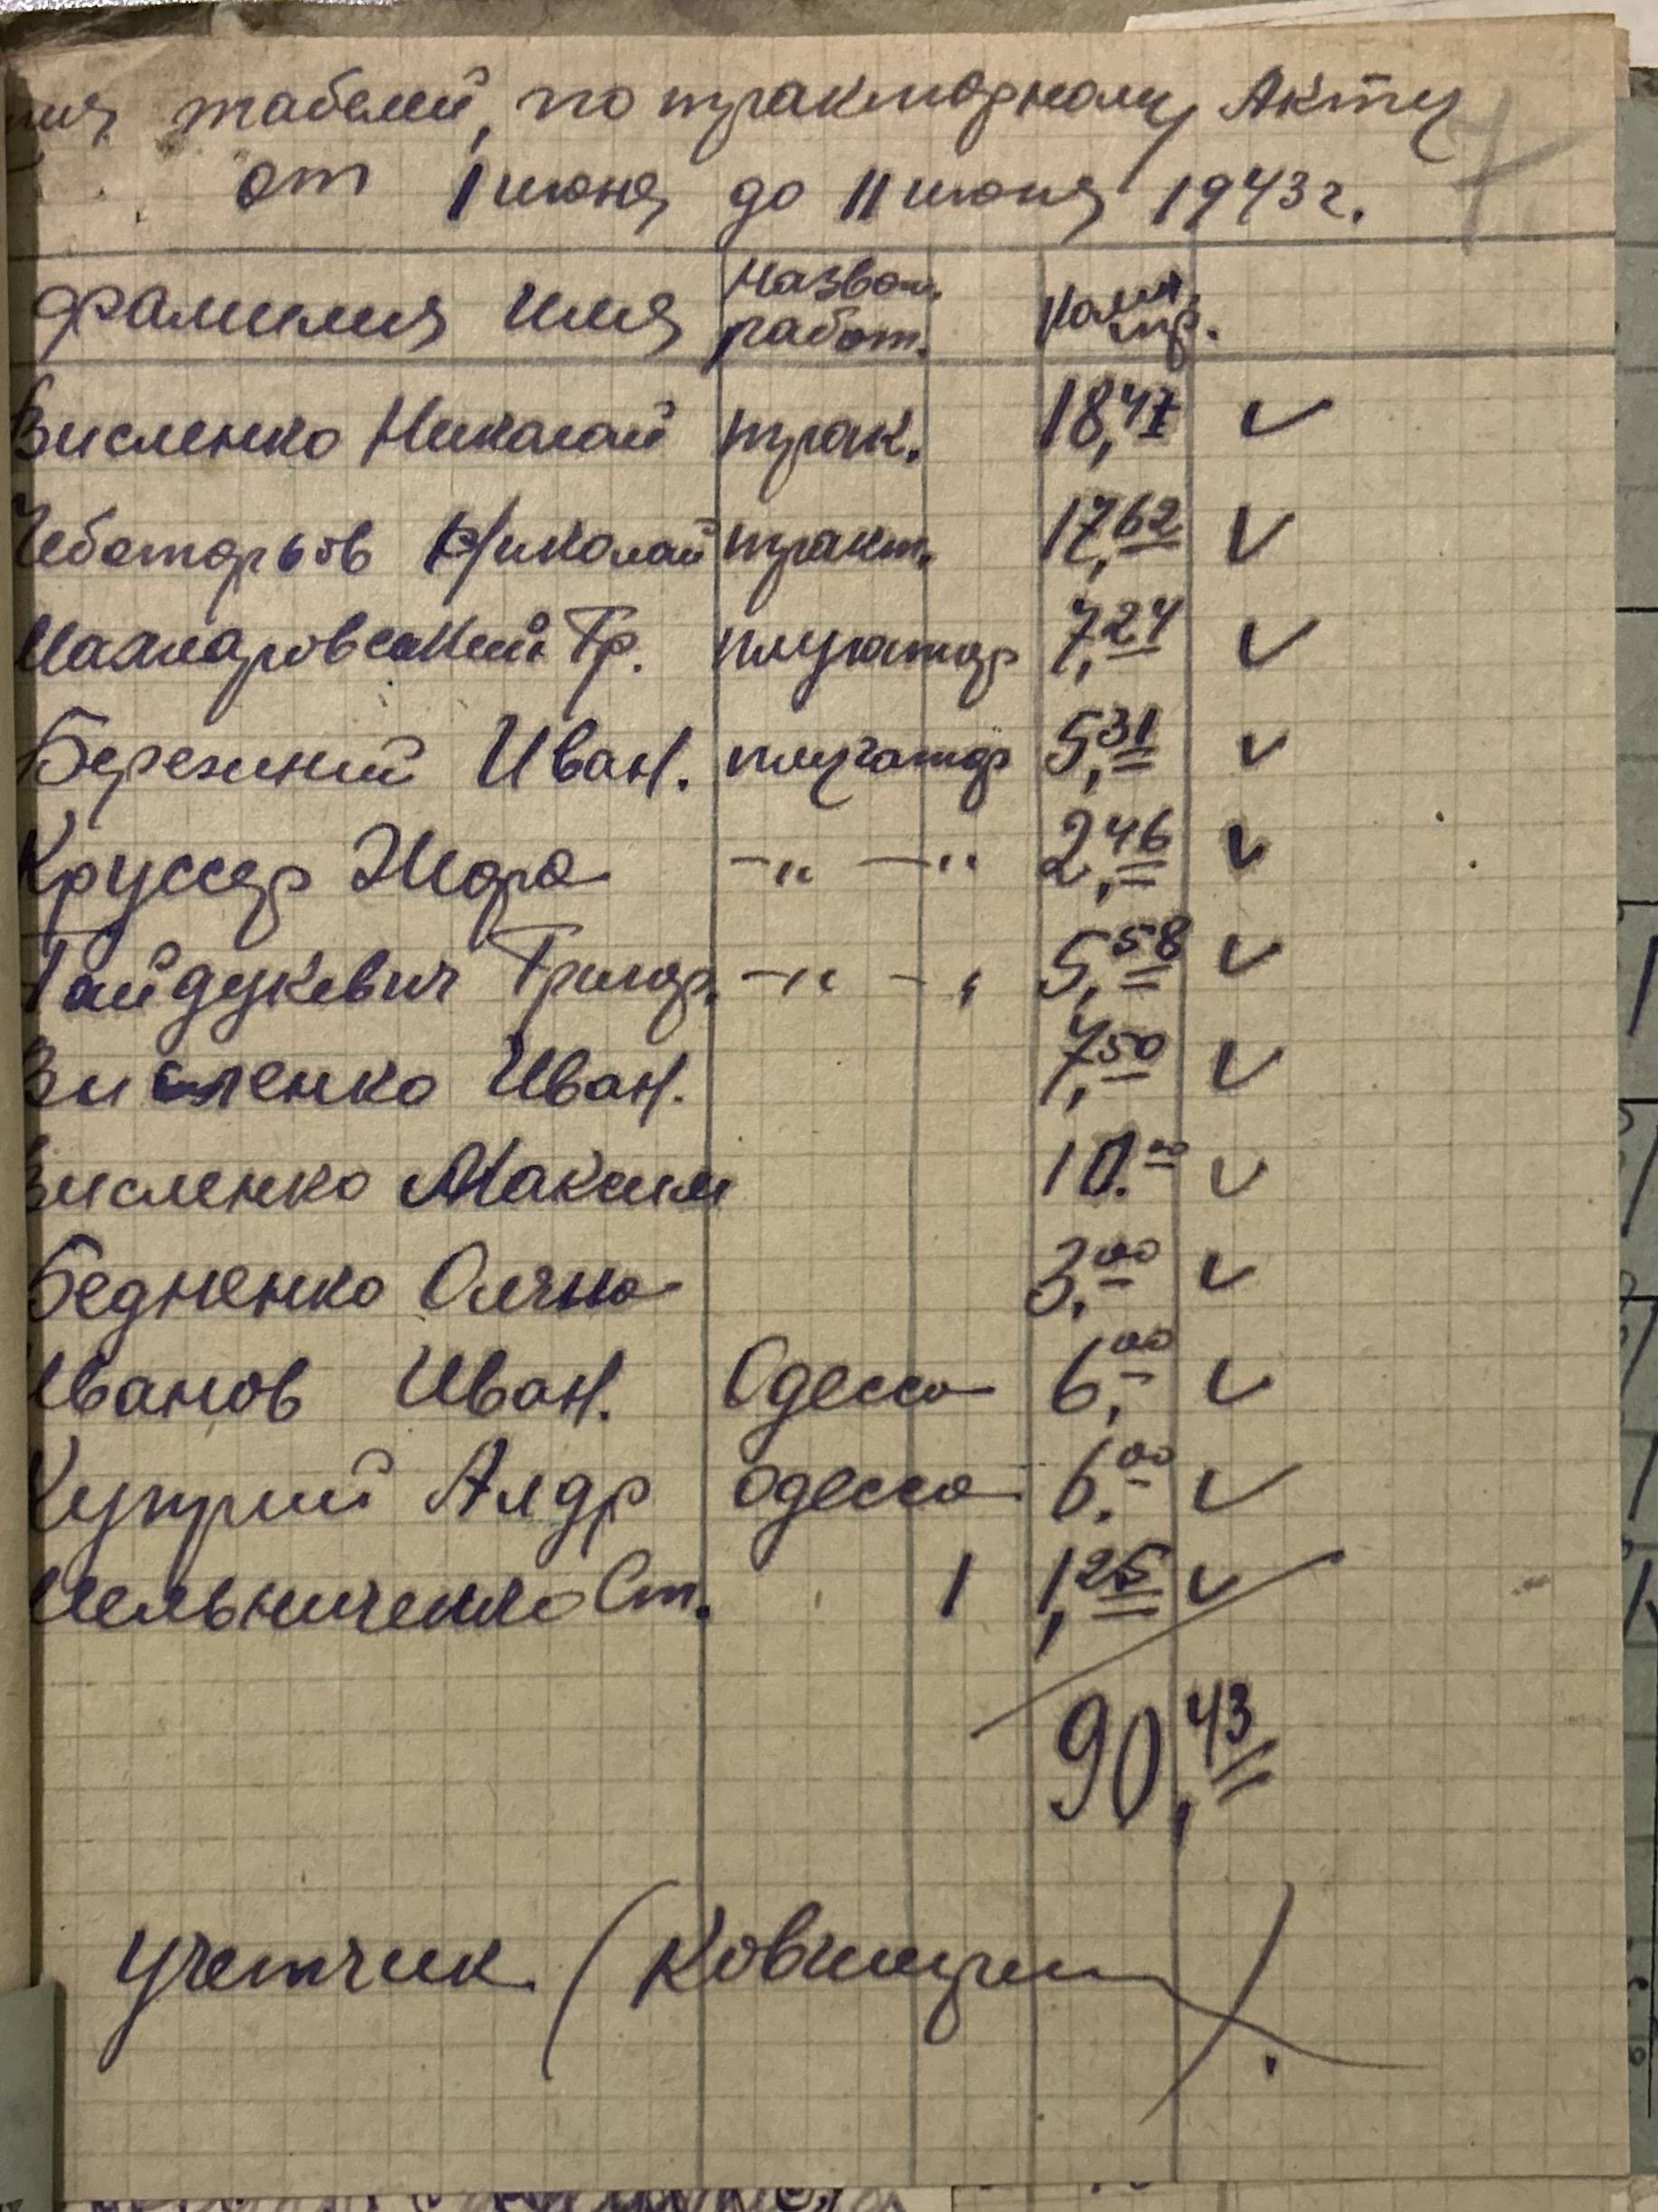 табелей, по тракторному Акту
от 1 июня до 11 июня 1943 г.
Фамилия Имя Назван. работ. Колич. тр.
Висленко Николай трак. 18,47 ✓
Чеботарьов Николай тракт. 17,62 ✓
Гр. плугатор 7,24 ✓
Бережний Иван. плугатор 5,31 ✓
Круссер Жора —„— —„ 2,46 ✓
Гайдукевич Григор. —„— —„ 5,58 ✓
Висленко Иван. 7,50 ✓
Висленко Максим 10.00 ✓
Бедненко Оляна 3,00 ✓
Иванов Иван. Одесса 6,00 ✓
Куприй Алдр Одесса 6.00 ✓
Мельниченко Ст. 1 1,25 ✓
90,43
Учетчик ( ).